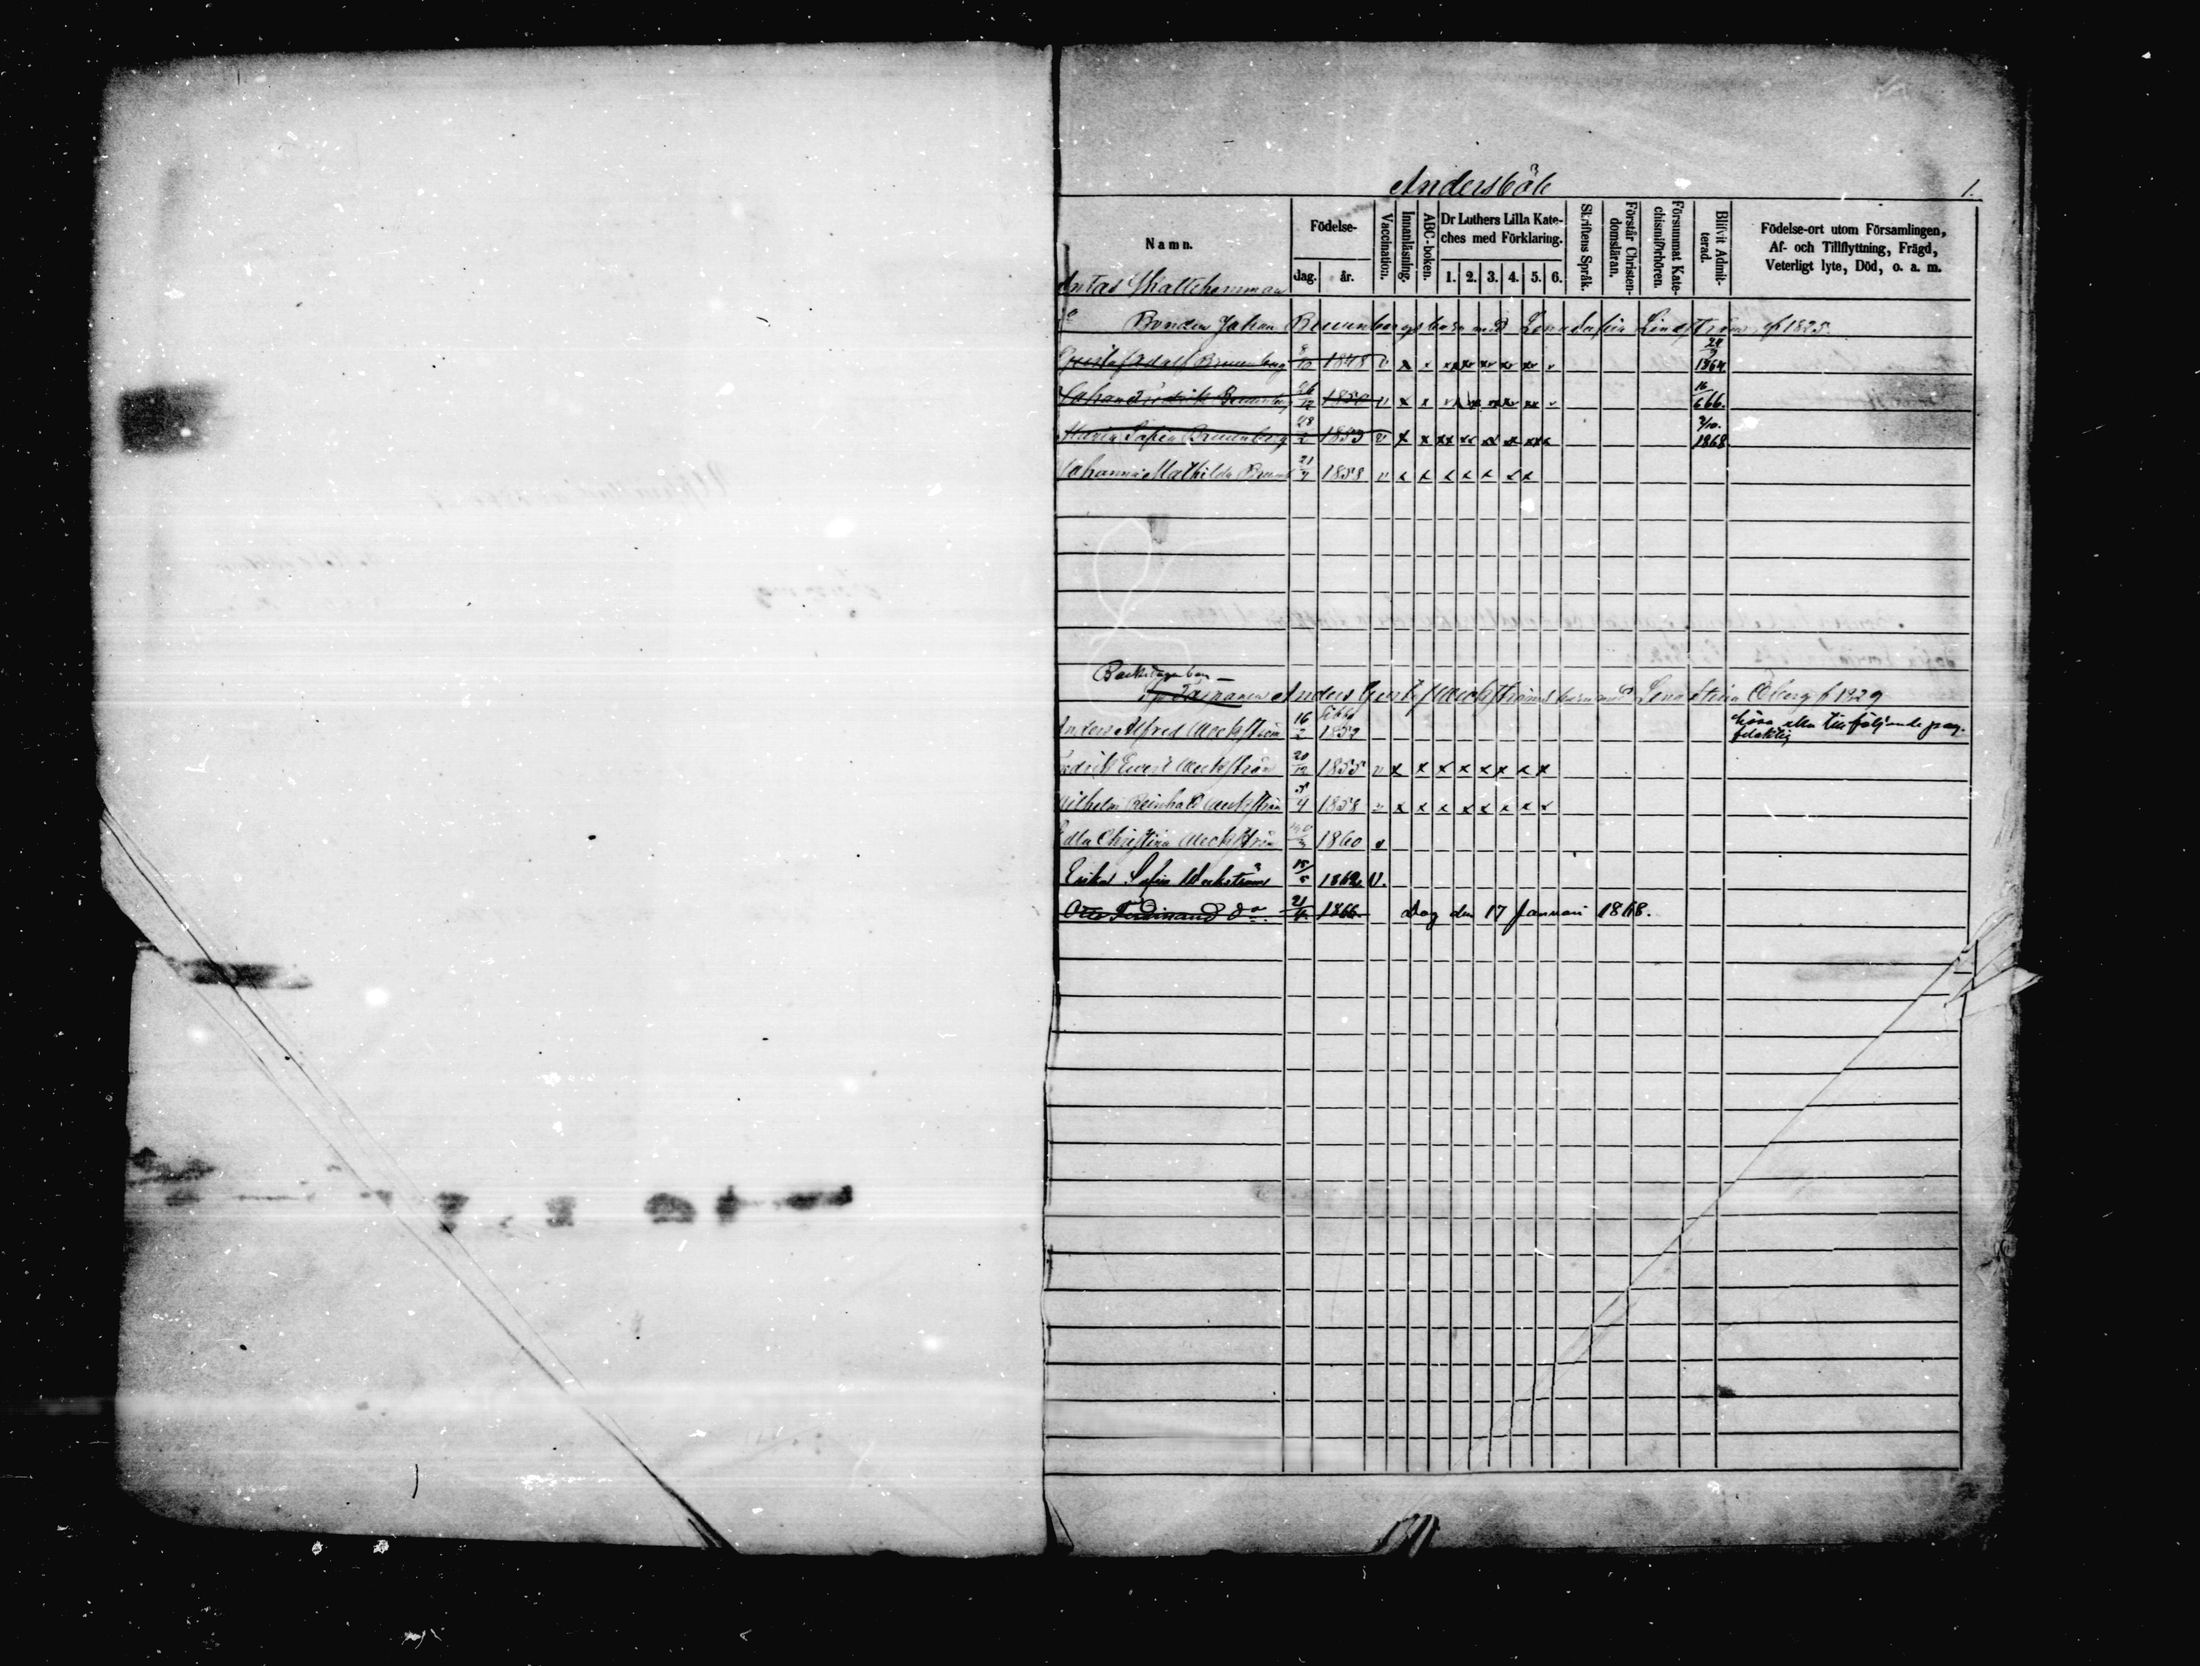 Andersböle 1.
Namn. Födelse- dag. år. Vaccination. Innanläsning. ABC-boken. Dr Luthers Lilla Kateches med Förklaring. 1. 2. 3. 4. 5. 6. Skriftens Språk. Förstår Christendomsläran. Försummat Katechismiförhören. Blifvit Admitterad. Födelse-ort utom Församlingen, Af- och Tillflyttning, Frägd, Veterligt lyte, Död, o. a. m.
Antas Skattehemman
Bonden Johan Brunnbergs barn med Lena Sofia Lindström f 1825.
Gustaf Adolf Brunnberg 8/10 1848 v x x xx xv xv xv xv v 24/9 1864.
Johan Fredrik Brunnberg 26/12 1850 v x x 16/6 66.
Maria Sofia Brunnberg 28/2 1853 v x x xx xx xx xx xxx 9/10. 1868
Johanna Mathilda Brunnb 21/7 1858 v x x x x x x x
Backstugu
Anders Gust Meckströms barn med Lena Stina Öberg f 1829
Anders Alfred Meckström 16/2 1852 följande pag.
Fredrik Evert Meckström 20/12 1855 v x x x x x x x x
Wilhelm Reinhold Meckström 5/4 1858 v x x x x x x x x
Edla Christina Meckström 1860 v
Erika Sofia Meckström 15/5 1862 V.
Otto Ferdinand do. 21/6. 1866 dog den 17 Januari 1868.